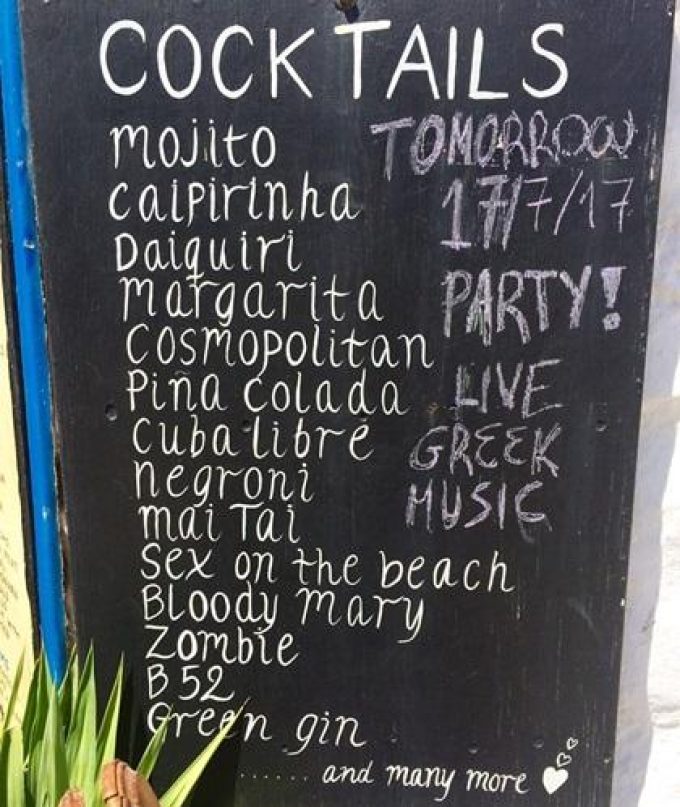 COCKTAILS
Mojito
Caipirinha
Daiquiri
Margarita
Cosmopolitan
Piña Colada
Cuba libre
Negroni
Mai Tai
Sex on the beach
Bloody Mary
Zombie
B 52
Green gin
...... and many more
TOMORROW
17/7/17
PARTY!
LIVE
GREEK
MUSIC